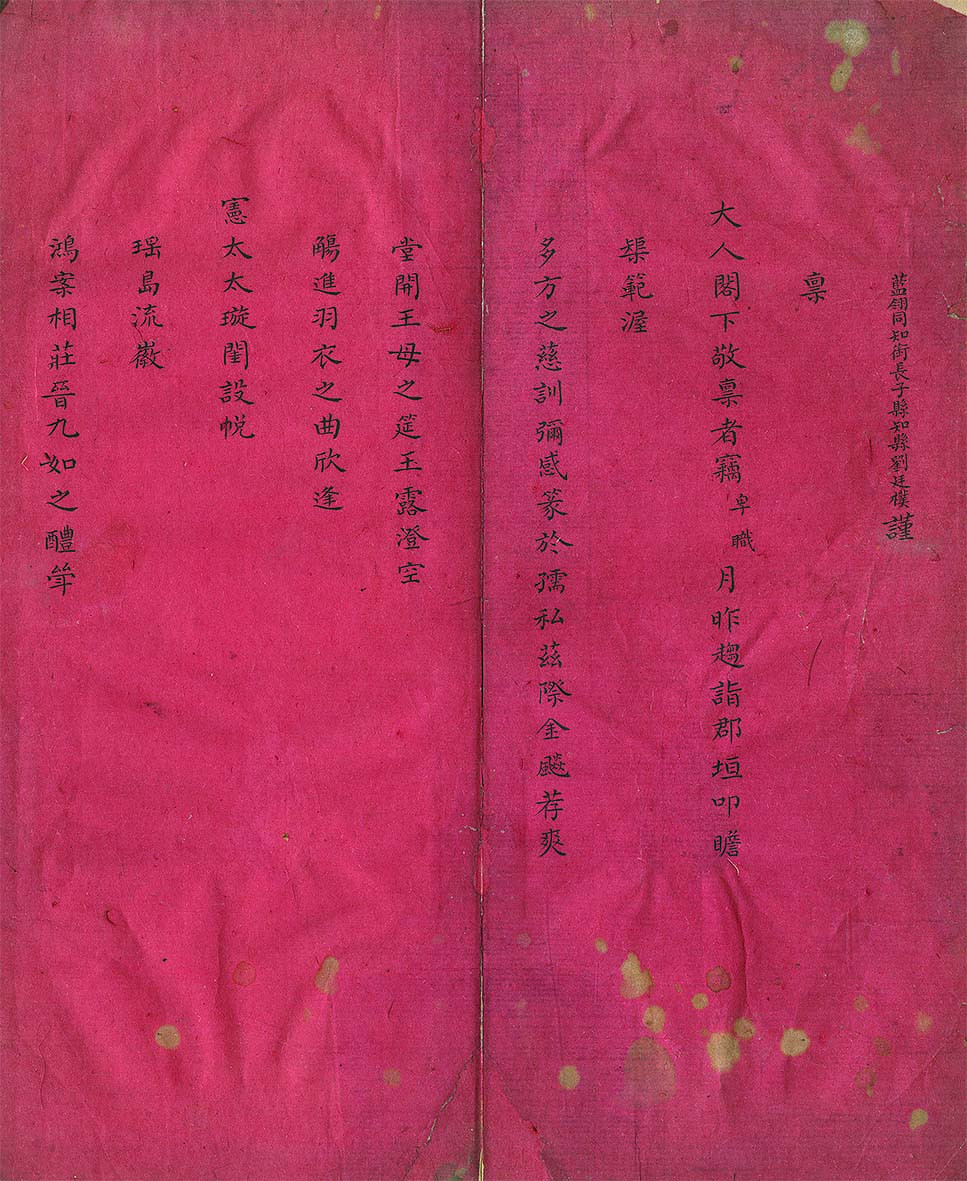 藍翎同知銜長子縣知縣劉廷樸謹
稟
大人閣下敬稟者竊卑職月昨趨詣郡垣叩瞻
榘範渥
多方之慈訓彌感篆於孺私茲際金飈荐爽
堂開王母之筵玉露澄空
觴進羽衣之曲欣逢
憲太太璇閨設帨
瑶島流徽
鴻案相莊晉九如之醴斝